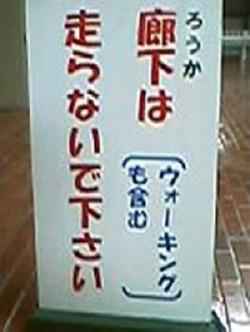 ろうか
廊下は
走らないで下さい
(ウォーキング
も含む)